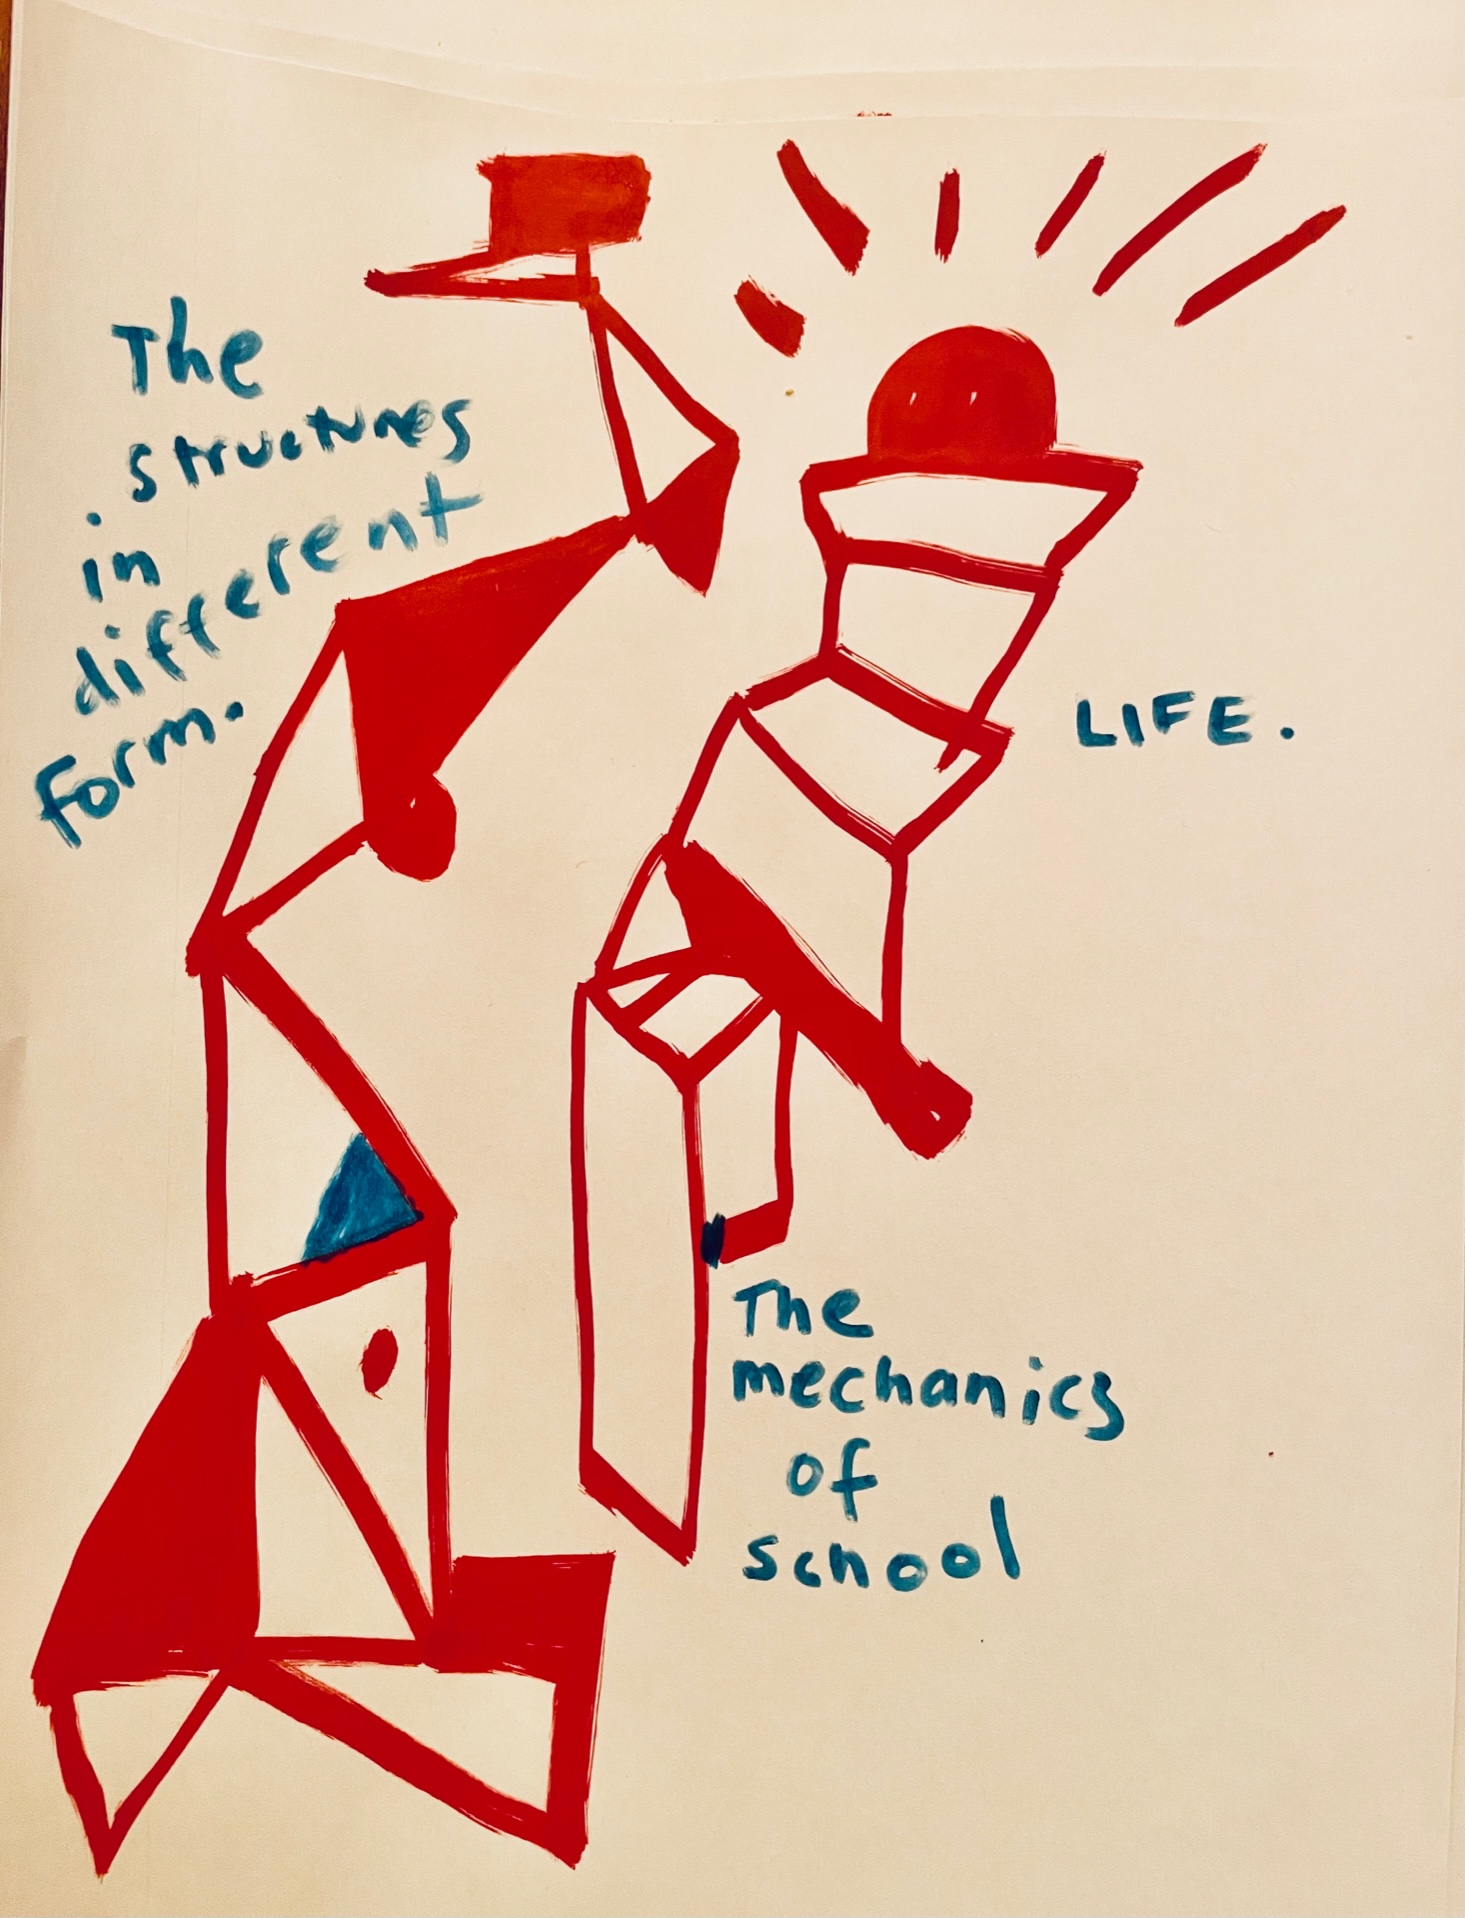 The
structures
in
different
form.
LIFE.
The
mechanics
of
school